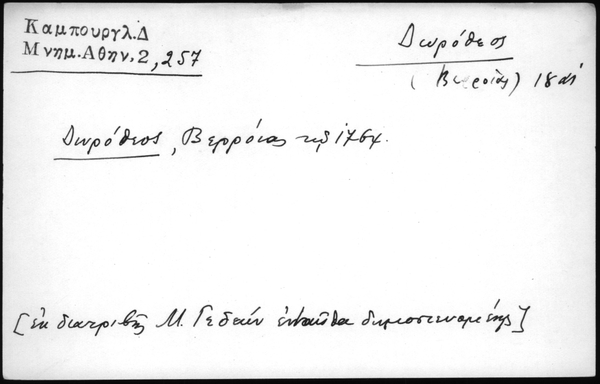 Καμπουργλ.Δ
Μνημ.Αθην.2, 257
Δωρόθεος
(Βερροίας) 18 αἰ
Δωρόθεος, Βερροίας τῷ 1764.
[ἐκ διατριβῆς Μ. Γεδεὼν ἐνταῦθα δημοσιευομένης]